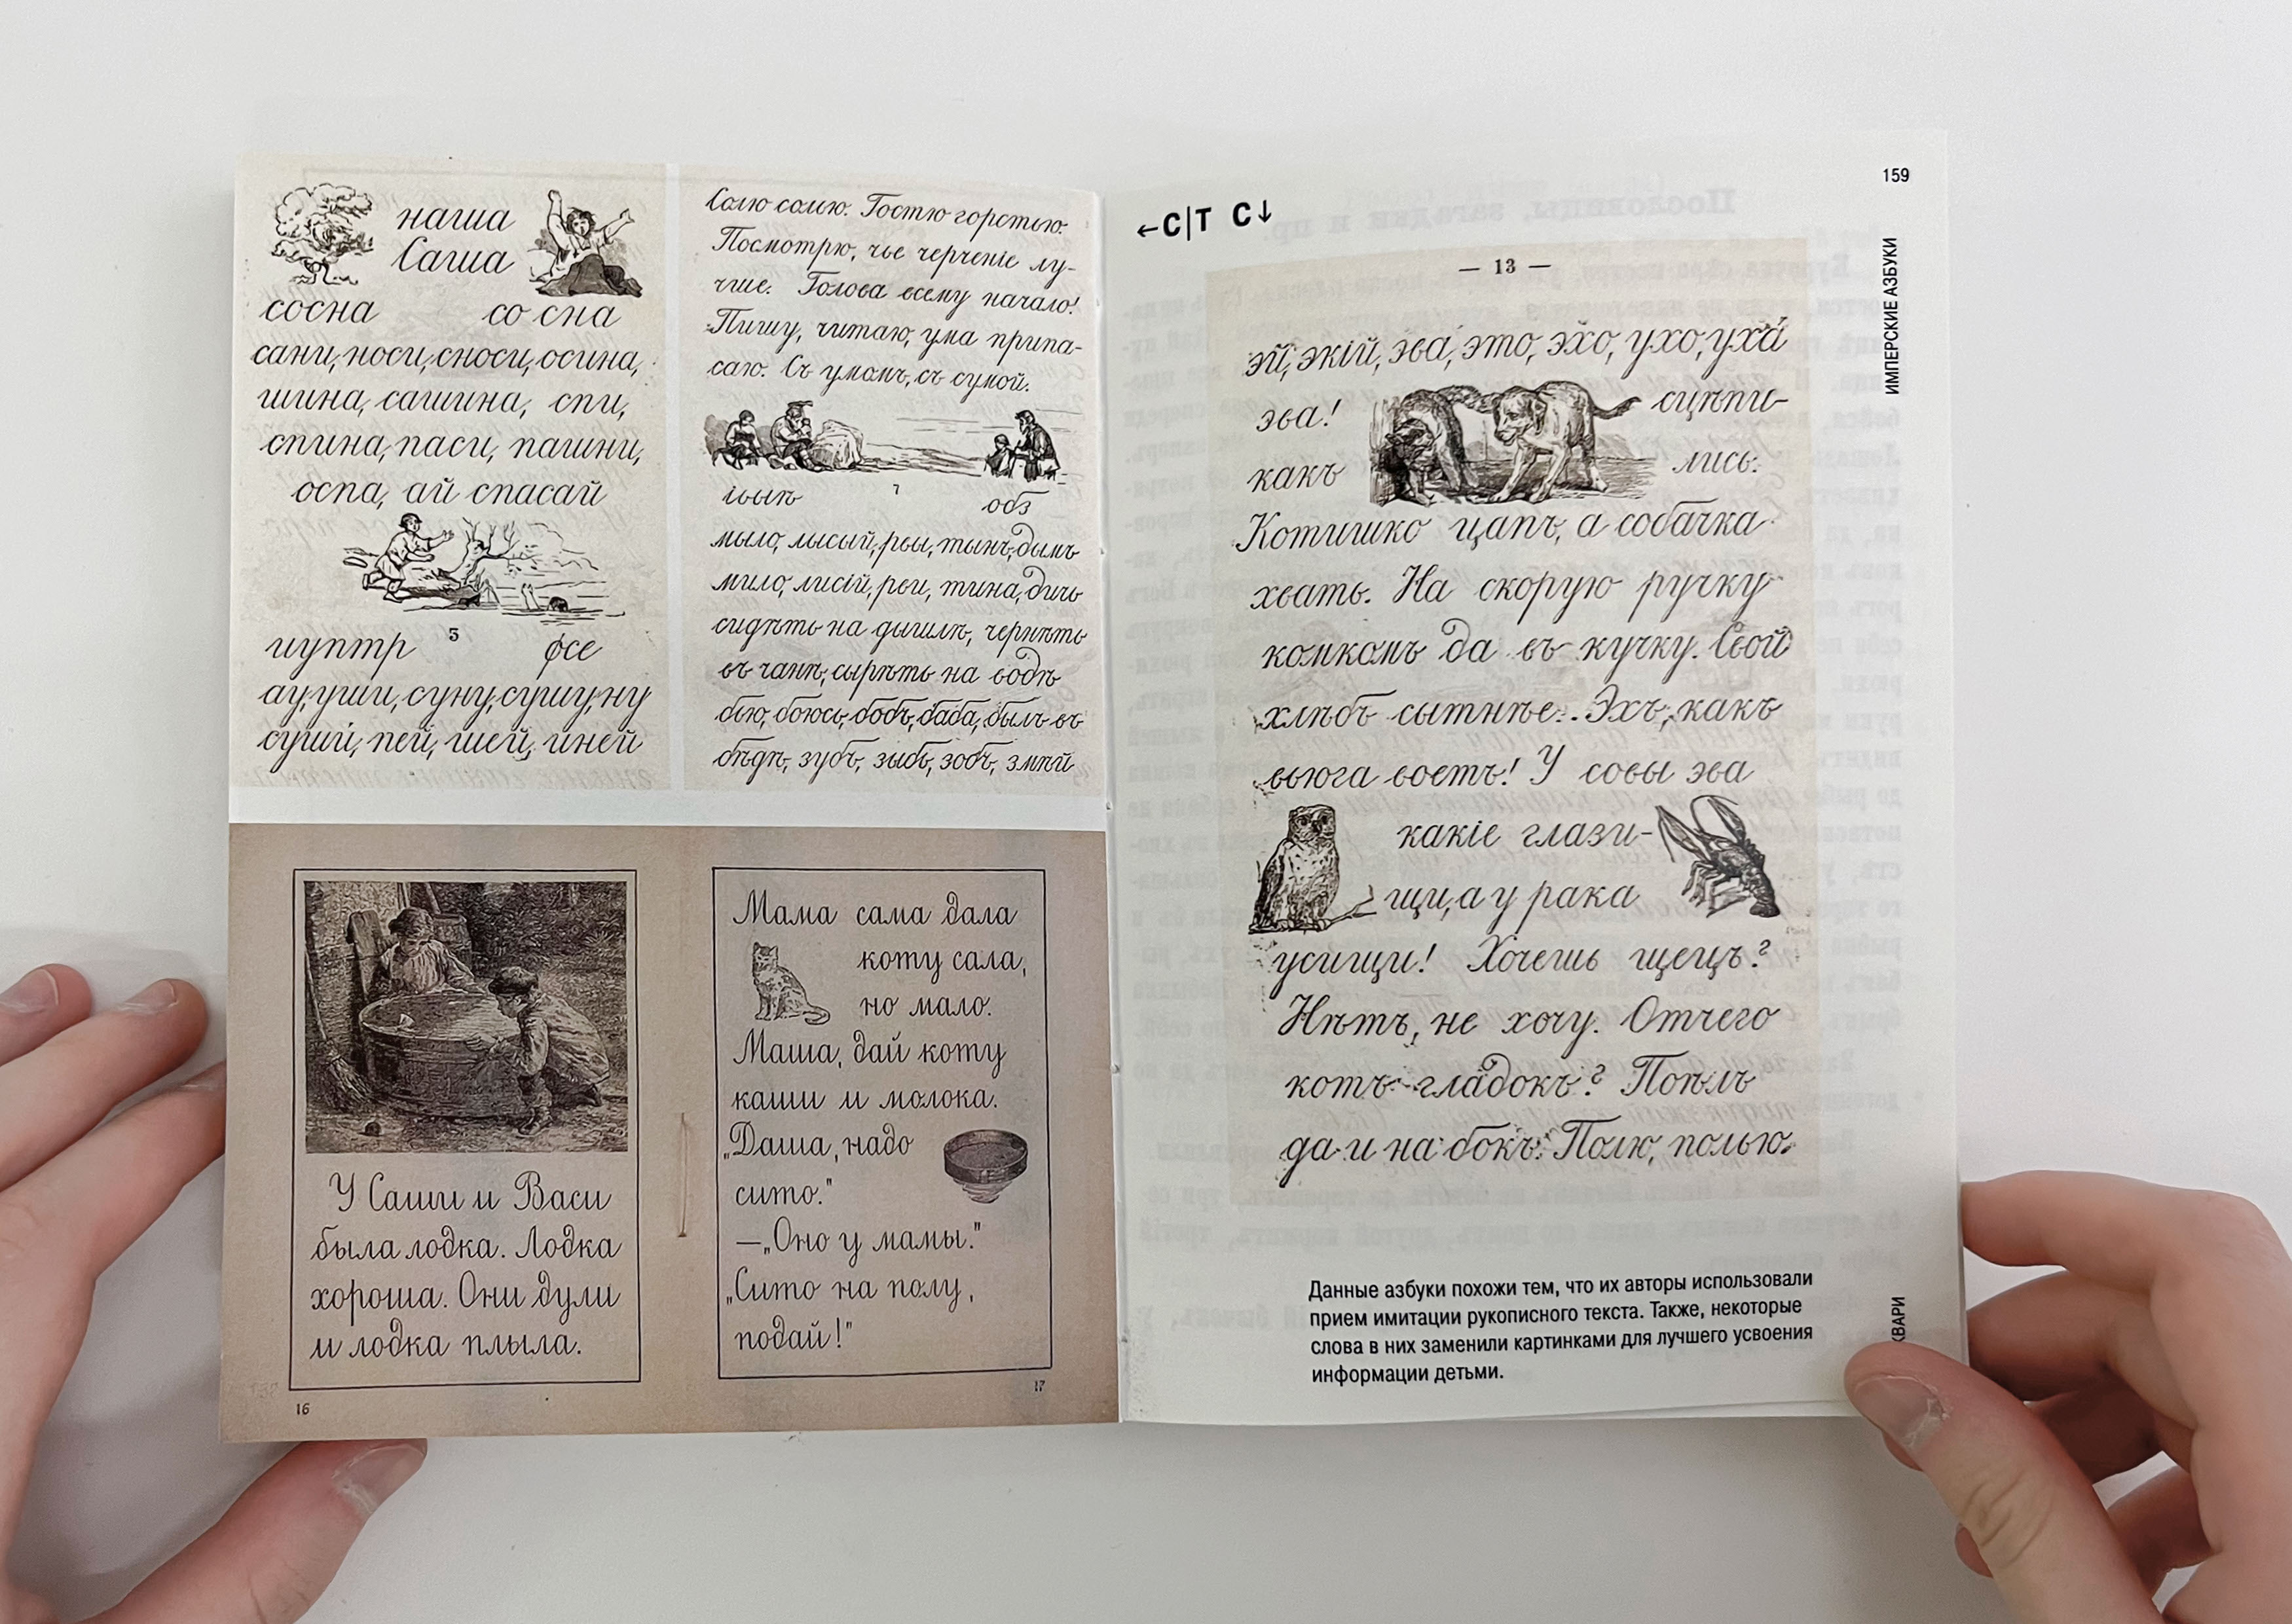 наша
Саша
сосна со сна
сани, носи, сноси, осина,
шина, сашина, спи,
спина, паси, пашни,
оспа, ай спасай
5
иуптр фсе
ау, уши, суну, сушу, ну
суши, пей, шей, иней
Солю солью. Гостю горстью.
Посмотрю, чье черченіе лу-
чше. Голова всему начало!
Пишу, читаю, ума припа-
саю. Съ умомъ, съ сумой.
7
іьыѣ обз
мыло, лысый, рвы, тынъ, дымъ
мило, лисій, рви, тина, дичь
сидѣть на дышлѣ, чернѣть
въ чанѣ, сырѣть на водѣ
бью, боюсь, бобъ, баба, былъ въ
бѣдѣ, зубъ, зыбь, зобъ, змѣй
У Саши и Васи
была лодка. Лодка
хороша. Они дули
и лодка плыла.
16
Мама сама дала
коту сала,
но мало.
Маша, дай коту
каши и молока.
„Даша, надо
сито."
—„Оно у мамы."
„Сито на полу,
подай!"
17
←С|Т С↓
159
ИМПЕРСКИЕ АЗБУКИ
— 13 —
эй, экій, эва, это, эхо, ухо, уха́
эва! сцѣпи-
какъ лись.
Котишко цапъ, а собачка
хвать. На скорую ручку
комкомъ да въ кучку. Свой
хлѣбъ сытнѣе. Эхъ, какъ
вьюга воетъ! У совы эва
какіе глази-
щи, а у рака
усищи! Хочешь щецъ?
Нѣтъ, не хочу. Отчего
котъ гладокъ? Поѣлъ
да и на бокъ. Полю, полью.
Данные азбуки похожи тем, что их авторы использовали
прием имитации рукописного текста. Также, некоторые
слова в них заменили картинками для лучшего усвоения
информации детьми.
КВАРИ